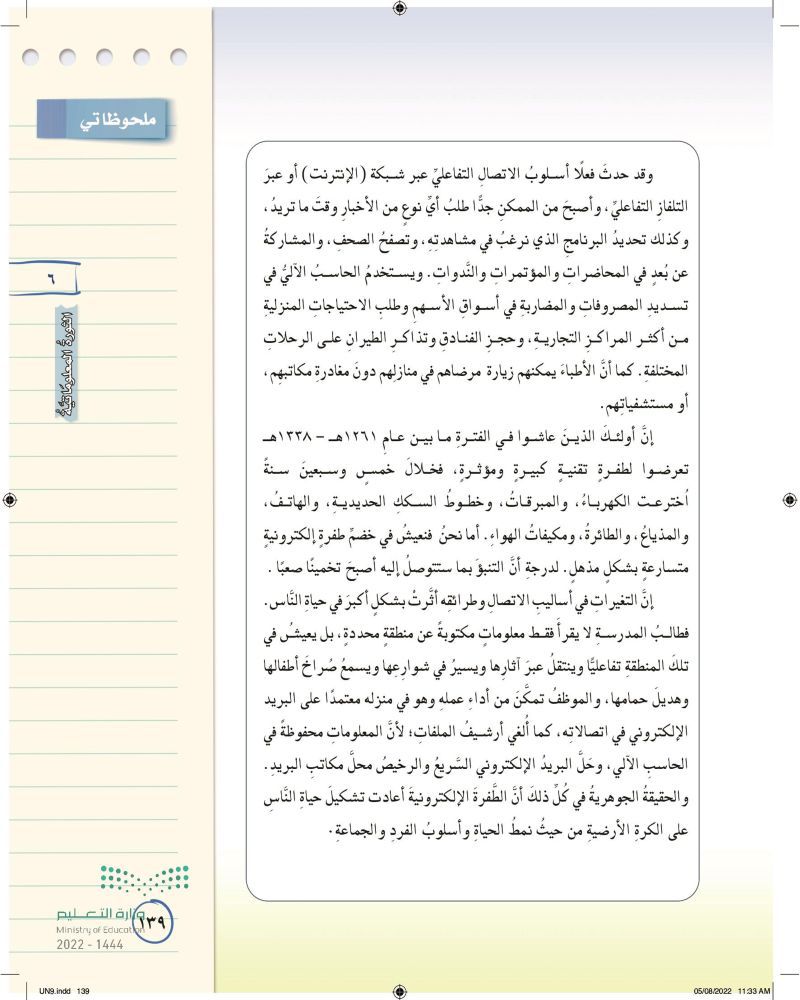 ملحوظاتي
٦
الثورةُ المعلوماتيَّةُ
وقد حدثَ فعلًا أسلوبُ الاتصالِ التفاعليِّ عبر شبكة (الإنترنت) أو عبرَ
التلفازِ التفاعليِّ، وأصبحَ من الممكنِ جدًّا طلبُ أيِّ نوعٍ من الأخبارِ وقتَ ما تريدُ،
وكذلك تحديدُ البرنامجِ الذي نرغبُ في مشاهدتِهِ، وتصفحُ الصحفِ، والمشاركةُ
عن بُعدٍ في المحاضراتِ والمؤتمراتِ والنَّدواتِ. ويستخدمُ الحاسبُ الآليُّ في
تسديدِ المصروفاتِ والمضاربةِ في أسواقِ الأسهمِ وطلبِ الاحتياجاتِ المنزليةِ
من أكثرِ المراكزِ التجاريةِ، وحجزِ الفنادقِ وتذاكرِ الطيرانِ على الرحلاتِ
المختلفةِ. كما أنَّ الأطباءَ يمكنهم زيارة مرضاهم في منازلِهم دونَ مغادرةِ مكاتبِهم،
أو مستشفياتِهم.
إنَّ أولئكَ الذينَ عاشوا في الفترةِ ما بين عامِ ١٢٦١هـ – ١٣٣٨هـ
تعرضوا لطفرةٍ تقنيةٍ كبيرةٍ ومؤثرةٍ، فخلالَ خمسٍ وسبعينَ سنةً
اُخترعت الكهرباءُ، والمبرقاتُ، وخطوطُ السككِ الحديديةِ، والهاتفُ،
والمذياعُ، والطائرةُ، ومكيفاتُ الهواءِ. أما نحنُ فنعيشُ في خضمِّ طفرةٍ إلكترونيةٍ
متسارعةٍ بشكلٍ مذهلٍ. لدرجةِ أنَّ التنبؤَ بما ستتوصلُ إليه أصبحَ تخمينًا صعبًا .
إنَّ التغيراتِ في أساليبِ الاتصالِ وطرائقِه أثَّرتْ بشكلٍ أكبرَ في حياةِ النَّاس.
فطالبُ المدرسةِ لا يقرأُ فقط معلوماتٍ مكتوبةً عن منطقةٍ محددةٍ، بل يعيشُ في
تلكَ المنطقةِ تفاعليًّا وينتقلُ عبرَ آثارِها ويسيرُ في شوارعِها ويسمعُ صُراخَ أطفالها
وهديلَ حمامها، والموظفُ تمكَّنَ من أداءِ عملهِ وهو في منزله معتمدًا على البريد
الإلكتروني في اتصالاتِه، كما أُلغي أرشيفُ الملفاتِ؛ لأنَّ المعلوماتِ محفوظةً في
الحاسب الآلي، وحَلَّ البريدُ الإلكتروني السَّريعُ والرخيصُ محلَّ مكاتبِ البريدِ.
والحقيقةُ الجوهريةُ في كُلِّ ذلكَ أنَّ الطَّفرةَ الإلكترونيةَ أعادت تشكيلَ حياةِ النَّاسِ
على الكرةِ الأرضيةِ من حيثُ نمطُ الحياةِ وأسلوبُ الفردِ والجماعةِ.
وزارة التعليم
Ministry of Education
2022 - 1444
١٣٩
UN9.indd 139
05/08/2022 11:33 AM